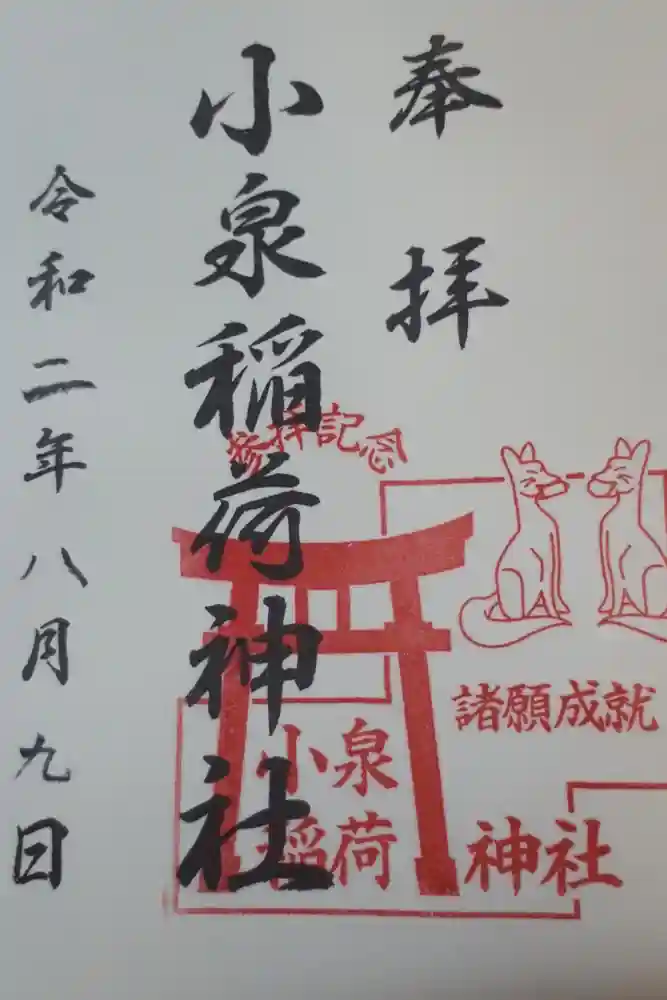 奉拝
小泉稲荷神社
令和二年八月九日
参拝記念
諸願成就
小泉
稲荷神社